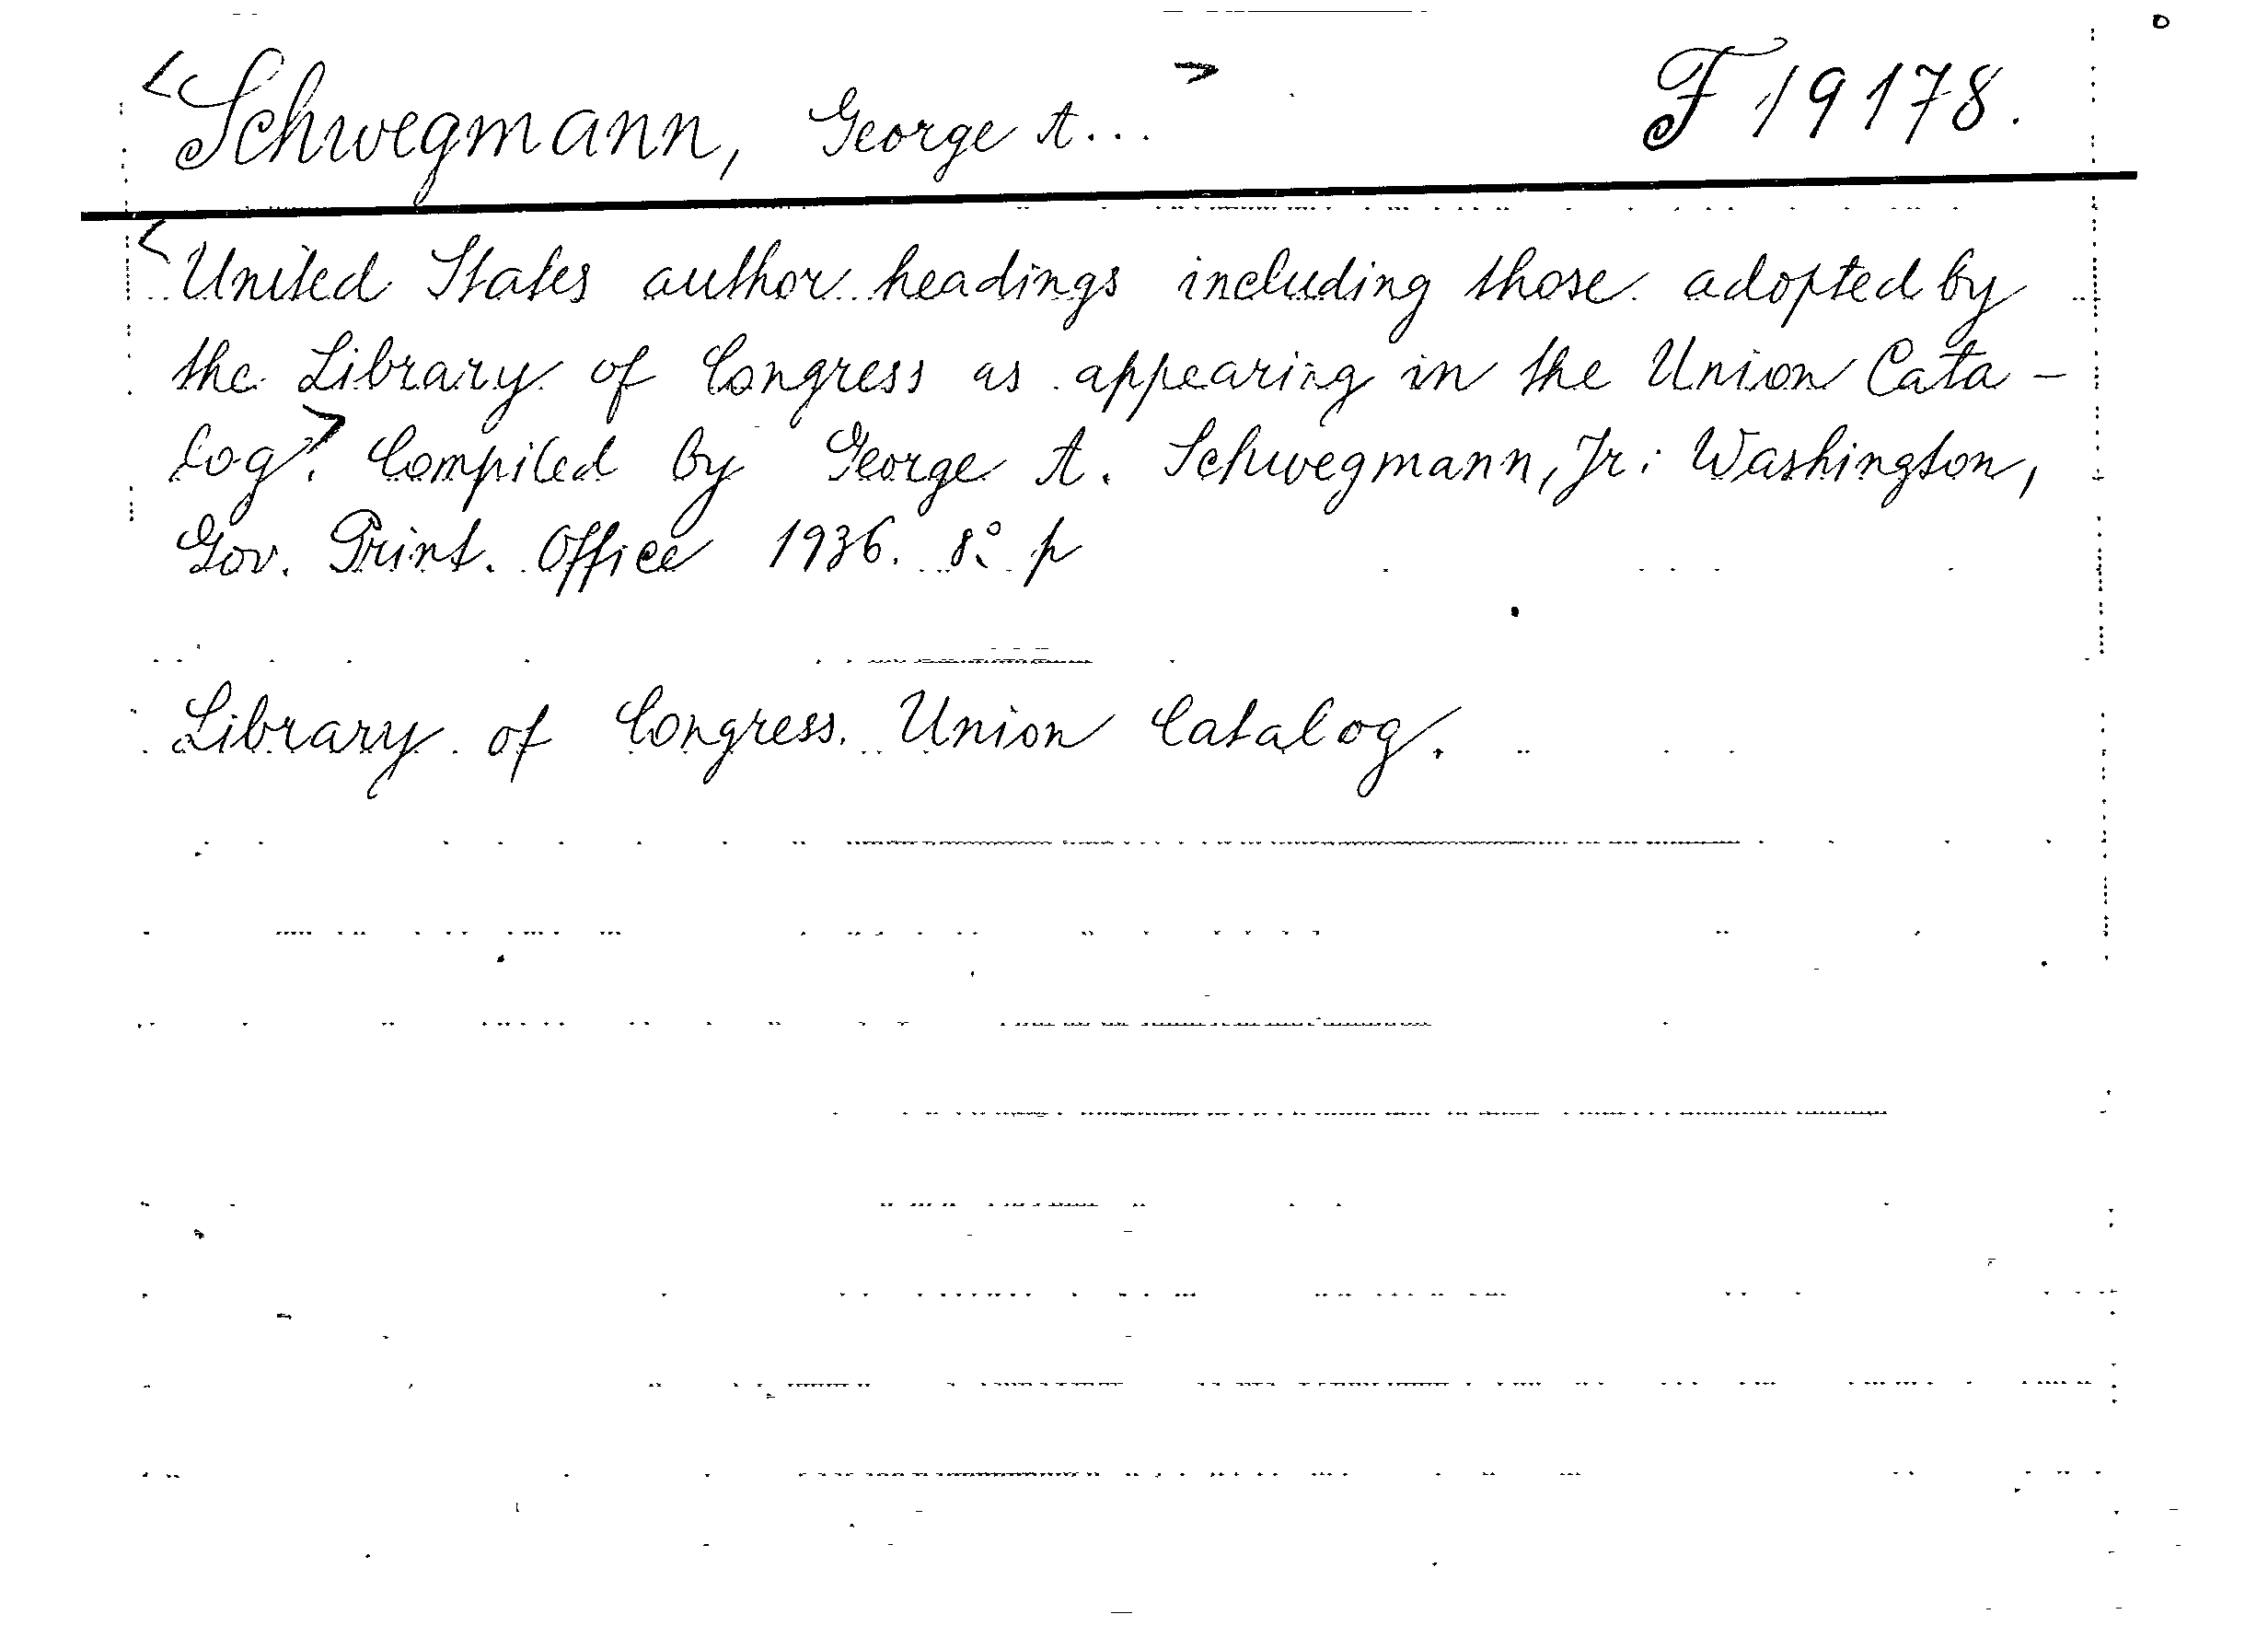 <Schwegmann, George A...> F 19178.
<United States author headings including those adopted by
the Library of Congress as appearing in the Union Cata-
log>. Compiled by George A. Schwegmann, Jr: Washington,
Gov. Print. Office 1936. 8° p
Library of Congress. Union Catalog.